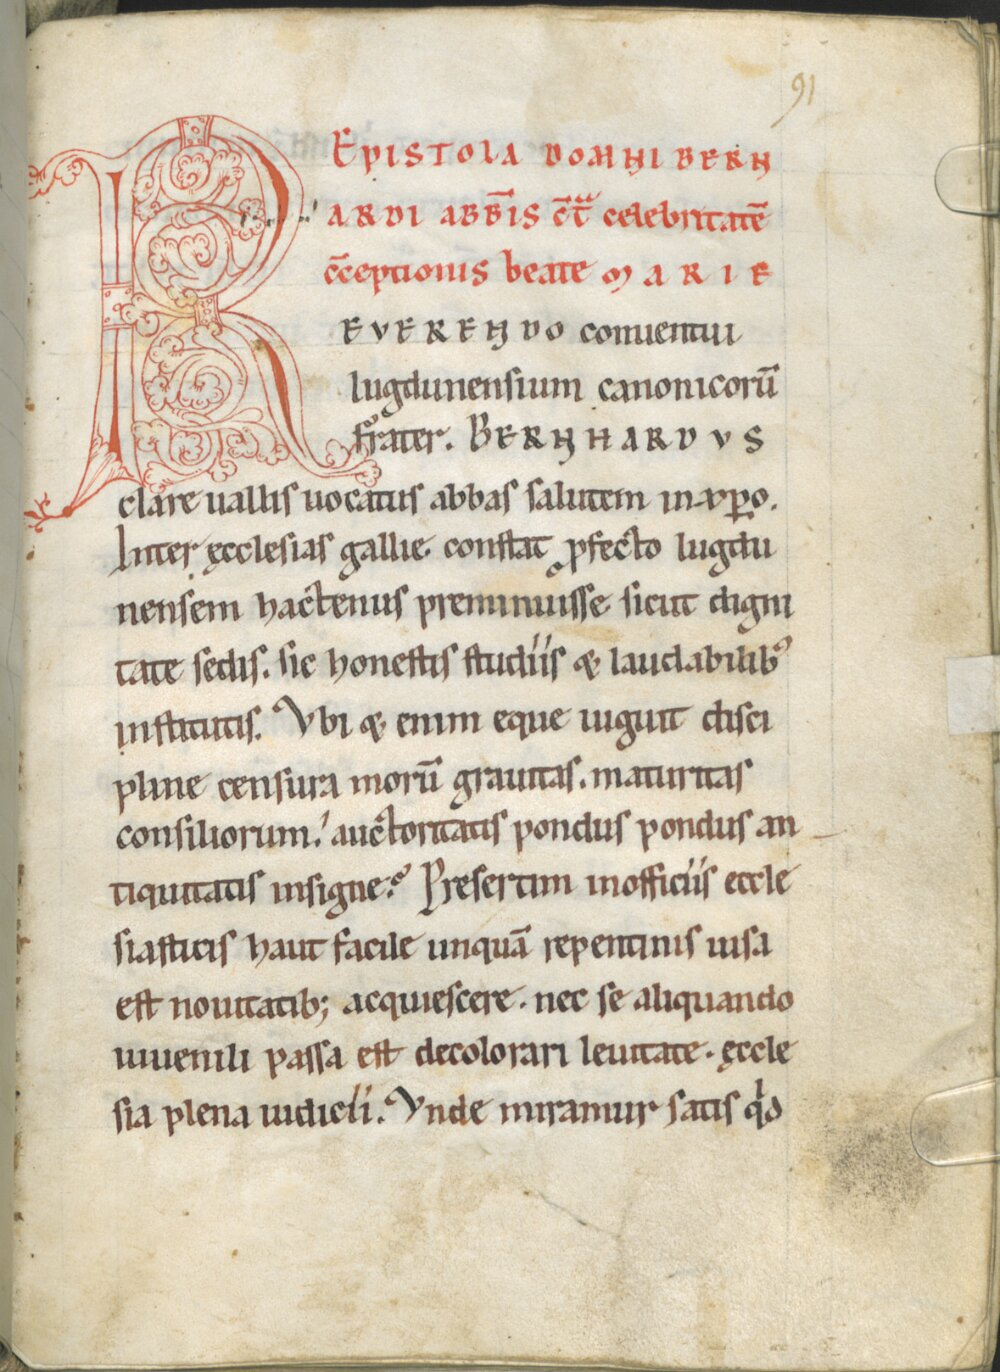 91
EPISTOLA DOMNI BERN
ARDI ABB̄IS c̄tᵃ celebritatē
c̄ceptionis beate MARIE
REVERENDO conuentui
lugdunensium canonicorū
frater. BERNHARDVS
clare uallis uocatus abbas salutem in xp̄o.
Inter ęcclesias gallie. constat ꝓfecto lugdu
nensem hactenus preminuisse sicut digni
tate sedis. sic honestis studiis & laudabilibꝰ
institutis. Vbi & enim eque uiguit disci
pline censura morū grauitas. maturitas
consiliorum. auctoritatis pondus pondus an
tiquitatis insigne? Presertim in officiis eccle
siasticis haut facile unquā repentinis uisa
est nouitatib; acquiescere. nec se aliquando
iuuenili passa est decolorari leuitate. ęccle
sia plena iudicii. Vnde miramur satis qd